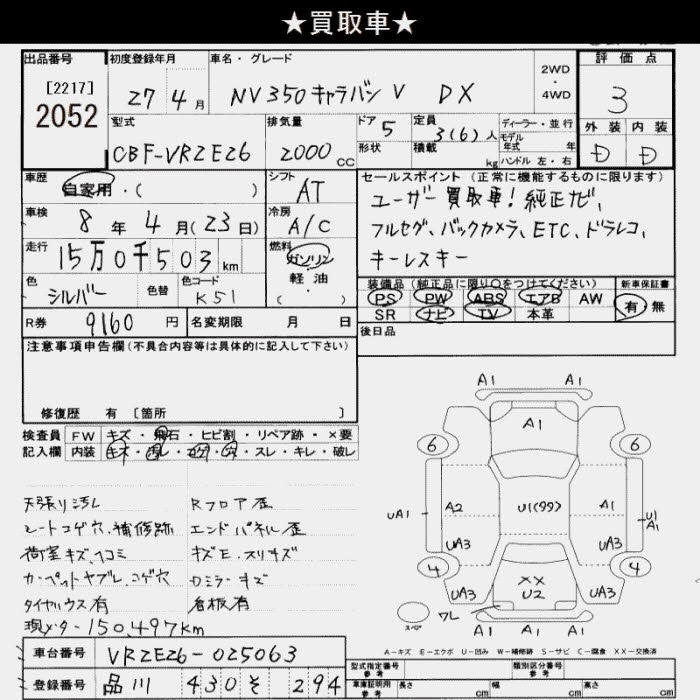 ★買取車★
出品番号 初度登録年月 車名・グレード 評価点
[2217]
2052
27年4月 NV350キャラバン V DX 2WD・4WD 3
型式 排気量 ドア 5 定員 3(6)人 ディーラー・並行 外装 内装
モデル年式 年
CBF-VR2E26 2000cc 形状 積載 kg ハンドル 左・右 D D
車歴 自家用・( ) シフト AT
セールスポイント(正常に機能するものに限ります)
車検 8年4月(23日) 冷房 A/C
ユーザー買取車!純正ナビ、
フルセグ、バックカメラ、ETC、ドラレコ、
キーレスキー
走行 15万0千503km 燃料 ガソリン
軽・油
( )
色 シルバー 色替 色コード K51
装備品(純正品に限り○をつけてください) 新車保証書
PS PW ABS エアB AW 有・無
SR ナビ TV 本革
R券 9160円 名変期限 月 日 後日品
注意事項申告欄(不具合内容等は具体的に記入して下さい)
修復歴 有 [箇所 ]
検査員 FW キズ・飛石・ヒビ割・リペア跡・×要
記入欄 内装 キズ・汚レ・コゲ・穴・スレ・キレ・破レ
天張り汚レ Rフロア歪
シートコゲ穴、補修跡 エンドパネル歪
荷室キズ、ヘコミ キズE、スリキズ
カーペットヤブレ、コゲ穴 Dミラーキズ
タイヤハウス有 看板有
現メーター150,497km
A1 A1
A1
6 6
UA1 A2 U1(99) A1 U1
A1
UA3 UA3
4 4
UA3 XX
U2 UA3
スペア ワレ
A1 A1 A1
A-キズ E-エクボ U-凹み W-補修跡 S-サビ C-腐食 XX-交換済
車台番号 VR2E26-025063
登録番号 品川 430 そ 294
型式指定番号 参考 類別区分番号 参考
車庫証明用 参考 長さ cm 幅 cm 高さ cm